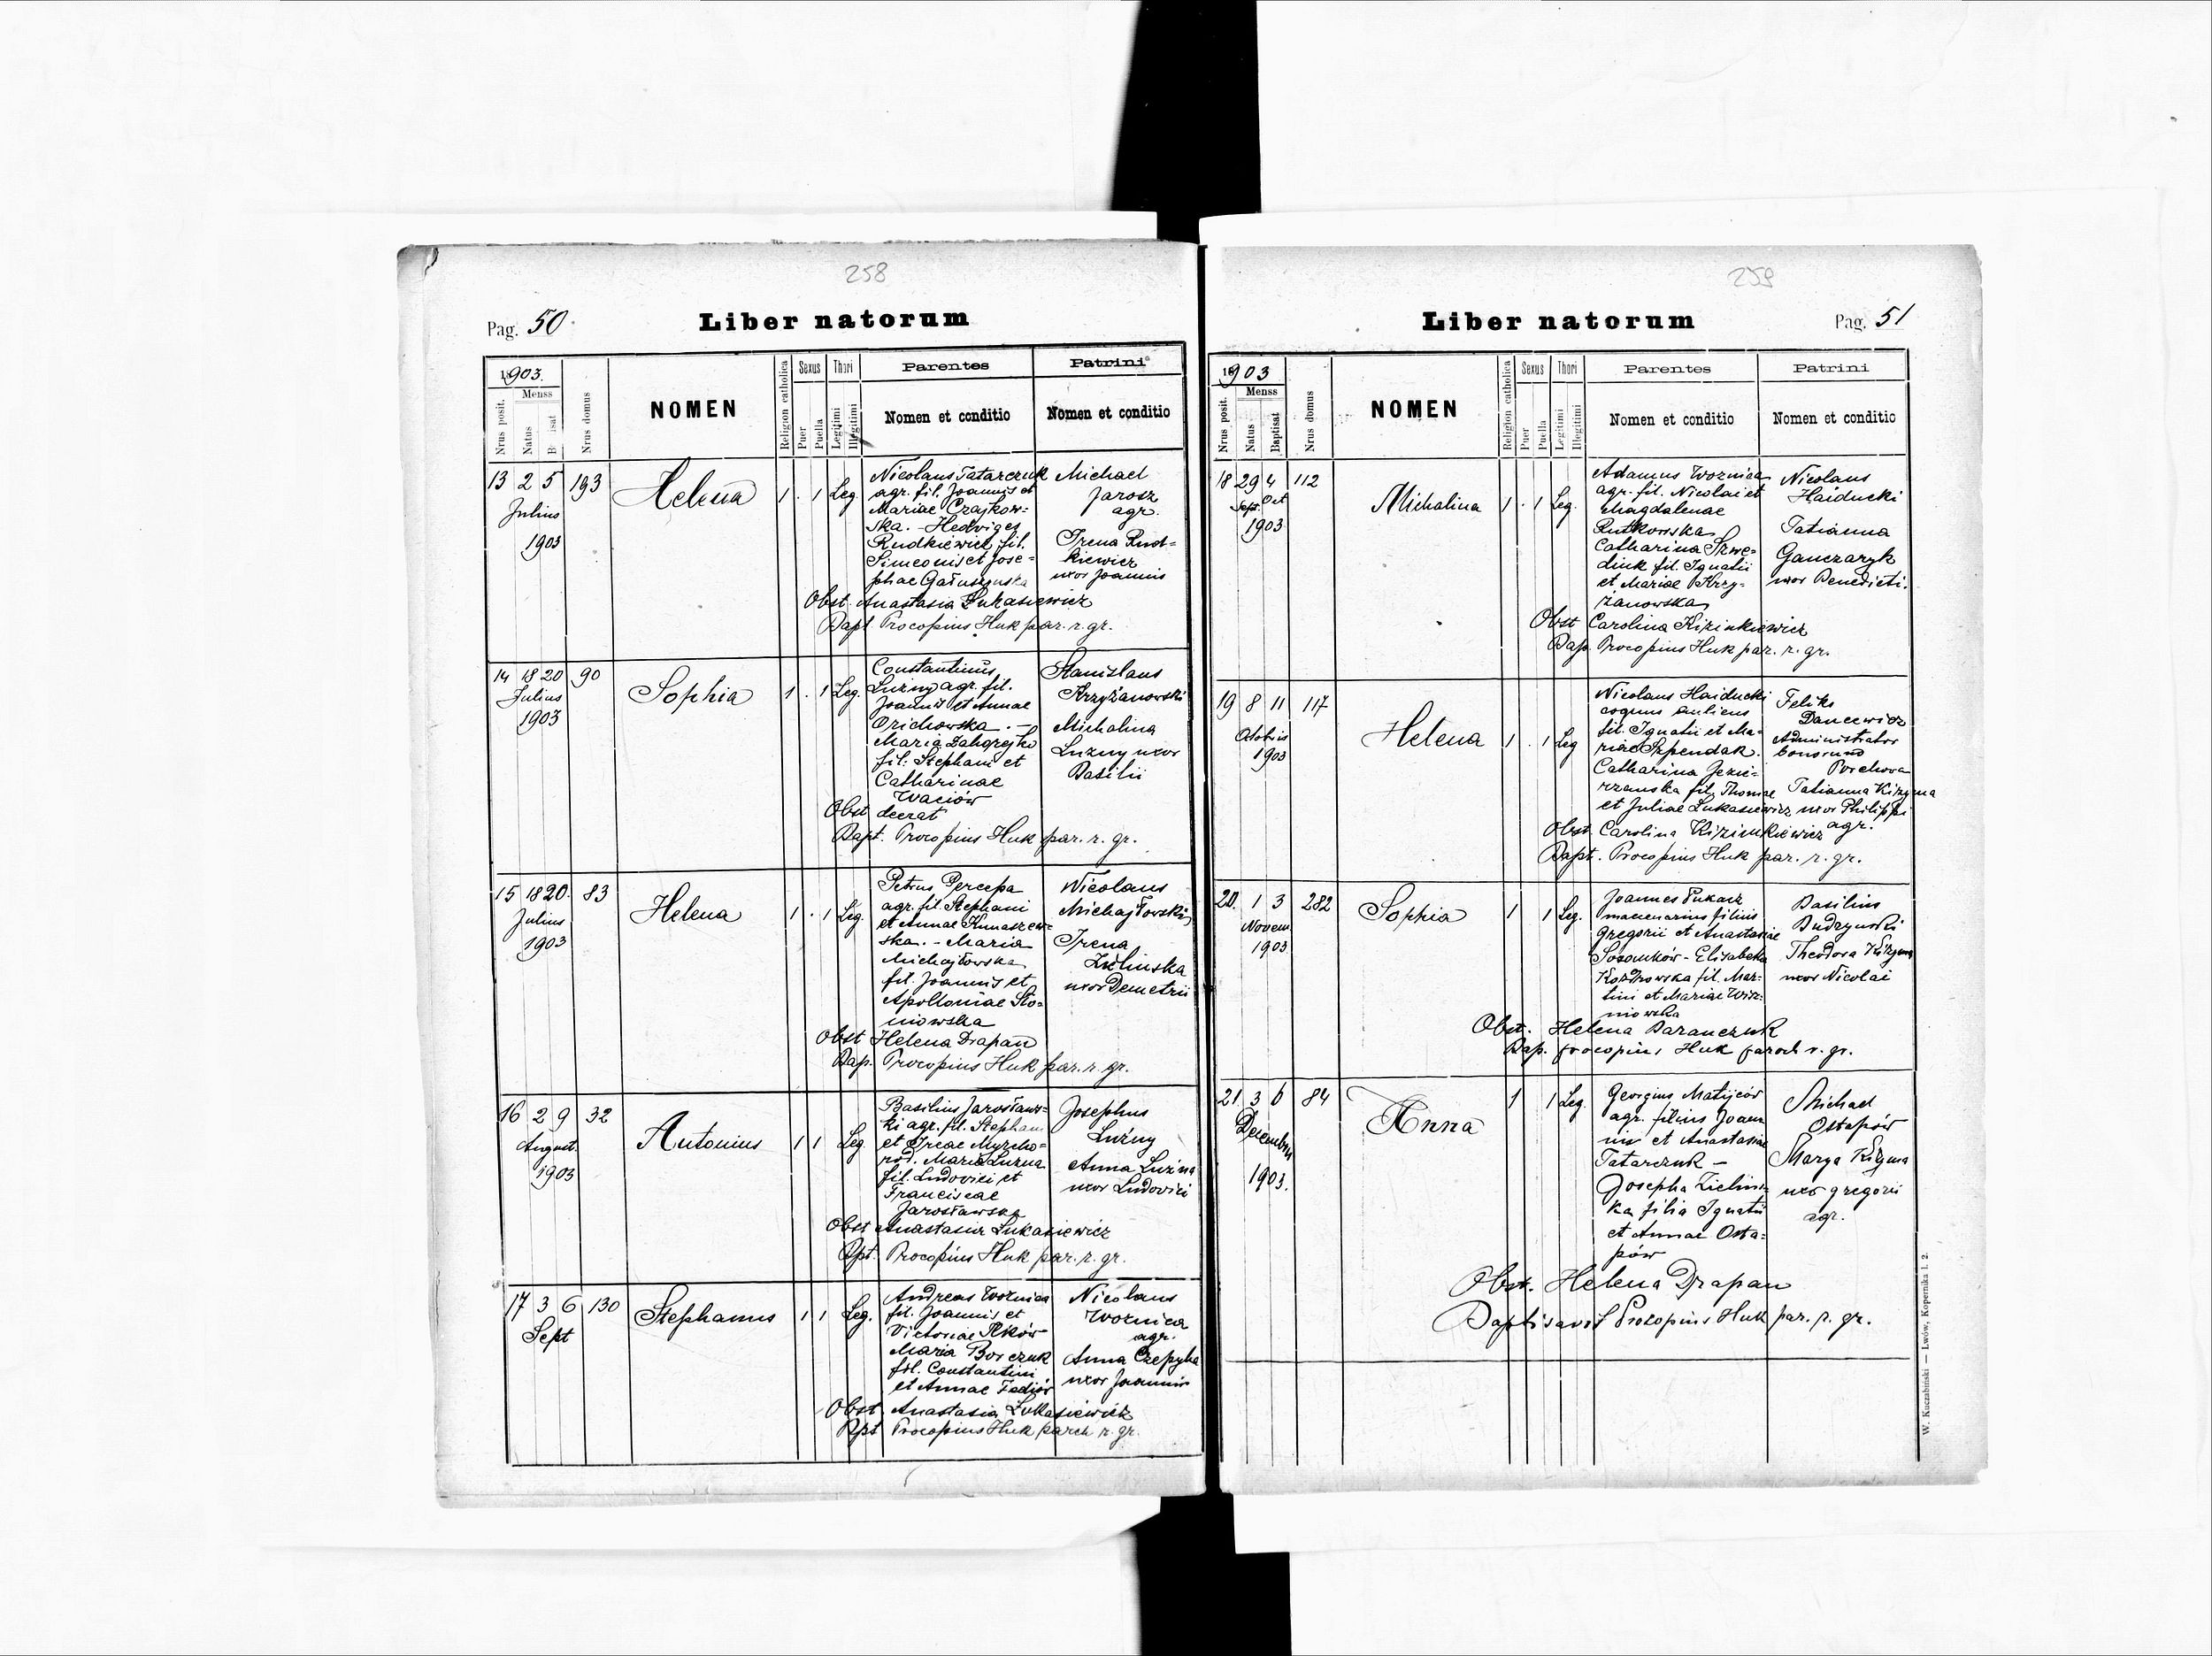 258
Pag. 50.
Liber natorum
1903.
Menss
Nrus posit.
Natus
Nrus domus
NOMEN
Religion catholica
Sexus
Puer
Puella
Thori
Legitimi
Illegitimi
Parentes
Nomen et conditio
Patrini
Nomen et conditio
13 2 5 193 Helena 1 . 1 Leg.
Julius
1903
Nicolaus Tatarczuk
agr. fil. Joannis et
Mariae Czajkow-
ska. - Hedviges
Rudkiewicz fil.
Simeonis et Jose-
phae
Michael
Jarosz
agr.
Irena Rud-
kiewicz
uxor Joannis
Obst. Anastasia Łukasiewicz
Bapt. Procopius Huk par. r. gr.
14 18 20 90 Sophia 1 . 1 Leg.
Julius
1903
Constantinus
Luzny agr. fil.
Joannis et Annae
Orichowska . -
Maria
fil: Stephani et
Catharinae
Waciów
Stanislaus
Krzyżanowski
Michalina
Luzny uxor
Basilii
Obst. deerat
Bapt. Procopius Huk par. r. gr.
15 18 20. 83 Helena 1 . 1 Leg.
Julius
1903
Petrus Percepa
agr. fil. Stephani
et Annae Kunaszew-
ska. - Maria
Michajłowska
fil. Joannis et
Apolloniae Sło-
niowska
Nicolaus
Michajłovski
Irena
Zielinska
uxor Demetrii
Obst Helena Drapan
Bap. Procopius Huk par. r. gr.
16 2 9 32 Antonius 1 1 Leg
August.
1903
Basilius Jarosławs-
ki agr. fil. Stephani
et Irene Myrcho-
rod. Maria Luzna
fil. Ludovici et
Franciscae
Jarosławska
Josephus
Luzny
Anna Luzna
uxor Ludovici
Obst Anastasia Lukasiewicz
Bpt. Procopius Huk par. r. gr.
17 3 6 130 Stephanus 1 1 Leg.
Sept
Andreas Woznica
fil. Joannis et
Victoriae Ilków
Maria Borczuk
fil. Constantini
et Annae Fediów
Nicolaus
Woznica
agr.
Anna Czepyha
uxor Joannis
Obst. Anastasia Lukasiewicz
Bpt Procopius Huk parch r. gr.
259
Liber natorum
Pag. 51
1903
Menss
Nrus posit.
Natus
Baptisat
Nrus domus
NOMEN
Religion catholica
Sexus
Puer
Puella
Thori
Legitimi
Illegitimi
Parentes
Nomen et conditio
Patrini
Nomen et conditio
18 29 4 112 Michalina 1 . 1 Leg.
Sept. Oct
1903
Adamus Woznica
agr. fil. Nicolai et
Magdalenae
Rutkowska
Catharina Szwe-
diuk fil. Ignatii
et Mariae Krzy-
żanowska
Nicolaus
Haiducki
Tatianna
Ganczaryk
uxor Benedicti.
Obst Carolina Kizinkiewicz
Bap. Procopius Huk par. r. gr.
19 8 11 117 Helena 1 . 1 Leg
Octobris
1903
Nicolaus Haiducki
coquus aulicus
fil. Ignatii et Ma-
riae
Catharina Jezie-
rzanska fil. Thomae
et Juliae Lukasiewicz
Feliks
Dancewicz
Administrator
bonorum
Porchova
Tatianna Kizyma
uxor Philippi
agr.
Obst. Carolina Kizienkiewicz
Bapt. Procopius Huk par. r. gr.
20. 1 3 282 Sophia 1 1 Leg.
Novem
1903
Joannes Pukacz
mercenarius filius
Gregorii et Anastasiae
Elisabetha
fil. Mar-
tini et Mariae Wisz-
niowska
Basilius
Budzynski
Theodora Kizyma
uxor Nicolai
Obst. Helena Baranczuk
Bap. Procopius Huk paroch r. gr.
21 3 6 84 Anna 1 1 Leg.
Decembris
1903.
Georgius Matijców
agr. filius Joan-
nis et Anastasiae
Tatarczuk -
Josepha Zielins-
ka filia Ignatii
et Annae Osta-
pów
Michael
Ostapów
Marya Kizyma
uxor Gregorii
agr.
Obst. Helena Drapan
Baptisavit Procopius Huk par. r. gr.
W. Kuczabiński — Lwów, Kopernika l. 2.